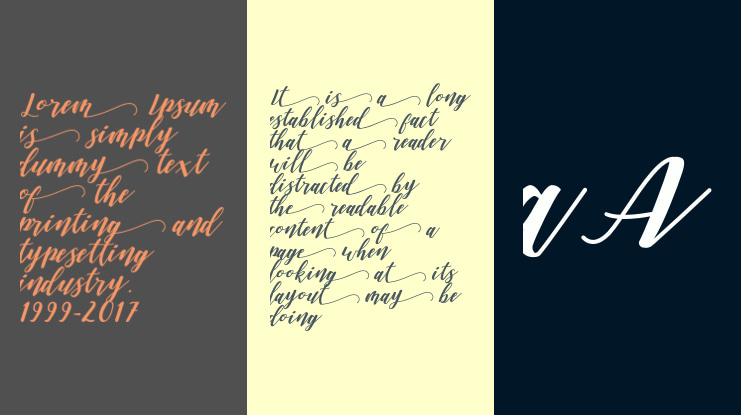 Lorem Ipsum
is simply
dummy text
of the
printing and
typesetting
industry.
1999-2017
It is a long
established fact
that a reader
will be
distracted by
the readable
content of a
page when
looking at its
layout may be
doing
a A